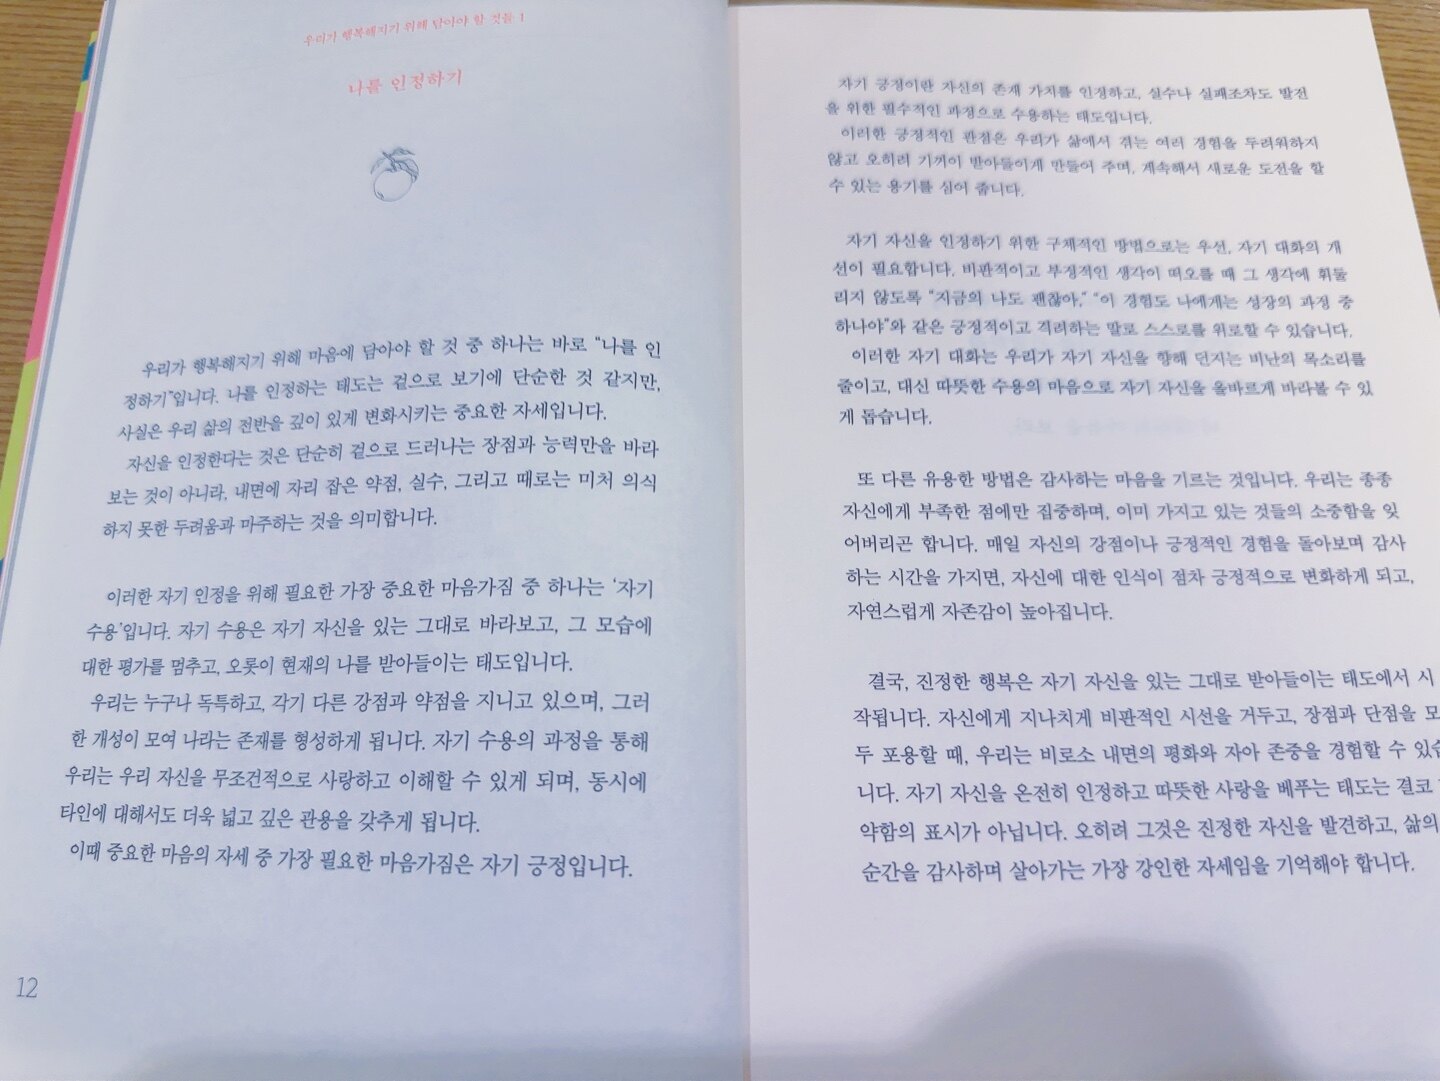 우리가 행복해지기 위해 담아야 할 것들 1
나를 인정하기
우리가 행복해지기 위해 마음에 담아야 할 것 중 하나는 바로 “나를 인
정하기”입니다. 나를 인정하는 태도는 겉으로 보기에 단순한 것 같지만,
사실은 우리 삶의 전반을 깊이 있게 변화시키는 중요한 자세입니다.
자신을 인정한다는 것은 단순히 겉으로 드러나는 장점과 능력만을 바라
보는 것이 아니라, 내면에 자리 잡은 약점, 실수, 그리고 때로는 미처 의식
하지 못한 두려움과 마주하는 것을 의미합니다.
이러한 자기 인정을 위해 필요한 가장 중요한 마음가짐 중 하나는 ‘자기
수용’입니다. 자기 수용은 자기 자신을 있는 그대로 바라보고, 그 모습에
대한 평가를 멈추고, 오롯이 현재의 나를 받아들이는 태도입니다.
우리는 누구나 독특하고, 각기 다른 강점과 약점을 지니고 있으며, 그러
한 개성이 모여 나라는 존재를 형성하게 됩니다. 자기 수용의 과정을 통해
우리는 우리 자신을 무조건적으로 사랑하고 이해할 수 있게 되며, 동시에
타인에 대해서도 더욱 넓고 깊은 관용을 갖추게 됩니다.
이때 중요한 마음의 자세 중 가장 필요한 마음가짐은 자기 긍정입니다.
12
자기 긍정이란 자신의 존재 가치를 인정하고, 실수나 실패조차도 발전
을 위한 필수적인 과정으로 수용하는 태도입니다.
이러한 긍정적인 관점은 우리가 삶에서 겪는 여러 경험을 두려워하지
않고 오히려 기꺼이 받아들이게 만들어 주며, 계속해서 새로운 도전을 할
수 있는 용기를 심어 줍니다.
자기 자신을 인정하기 위한 구체적인 방법으로는 우선, 자기 대화의 개
선이 필요합니다. 비판적이고 부정적인 생각이 떠오를 때 그 생각에 휘둘
리지 않도록 “지금의 나도 괜찮아,” “이 경험도 나에게는 성장의 과정 중
하나야”와 같은 긍정적이고 격려하는 말로 스스로를 위로할 수 있습니다.
이러한 자기 대화는 우리가 자기 자신을 향해 던지는 비난의 목소리를
줄이고, 대신 따뜻한 수용의 마음으로 자기 자신을 올바르게 바라볼 수 있
게 돕습니다.
또 다른 유용한 방법은 감사하는 마음을 기르는 것입니다. 우리는 종종
자신에게 부족한 점에만 집중하며, 이미 가지고 있는 것들의 소중함을 잊
어버리곤 합니다. 매일 자신의 강점이나 긍정적인 경험을 돌아보며 감사
하는 시간을 가지면, 자신에 대한 인식이 점차 긍정적으로 변화하게 되고,
자연스럽게 자존감이 높아집니다.
결국, 진정한 행복은 자기 자신을 있는 그대로 받아들이는 태도에서 시
작됩니다. 자신에게 지나치게 비판적인 시선을 거두고, 장점과 단점을 모
두 포용할 때, 우리는 비로소 내면의 평화와 자아 존중을 경험할 수 있습
니다. 자기 자신을 온전히 인정하고 따뜻한 사랑을 베푸는 태도는 결코
약함의 표시가 아닙니다. 오히려 그것은 진정한 자신을 발견하고, 삶의
순간을 감사하며 살아가는 가장 강인한 자세임을 기억해야 합니다.